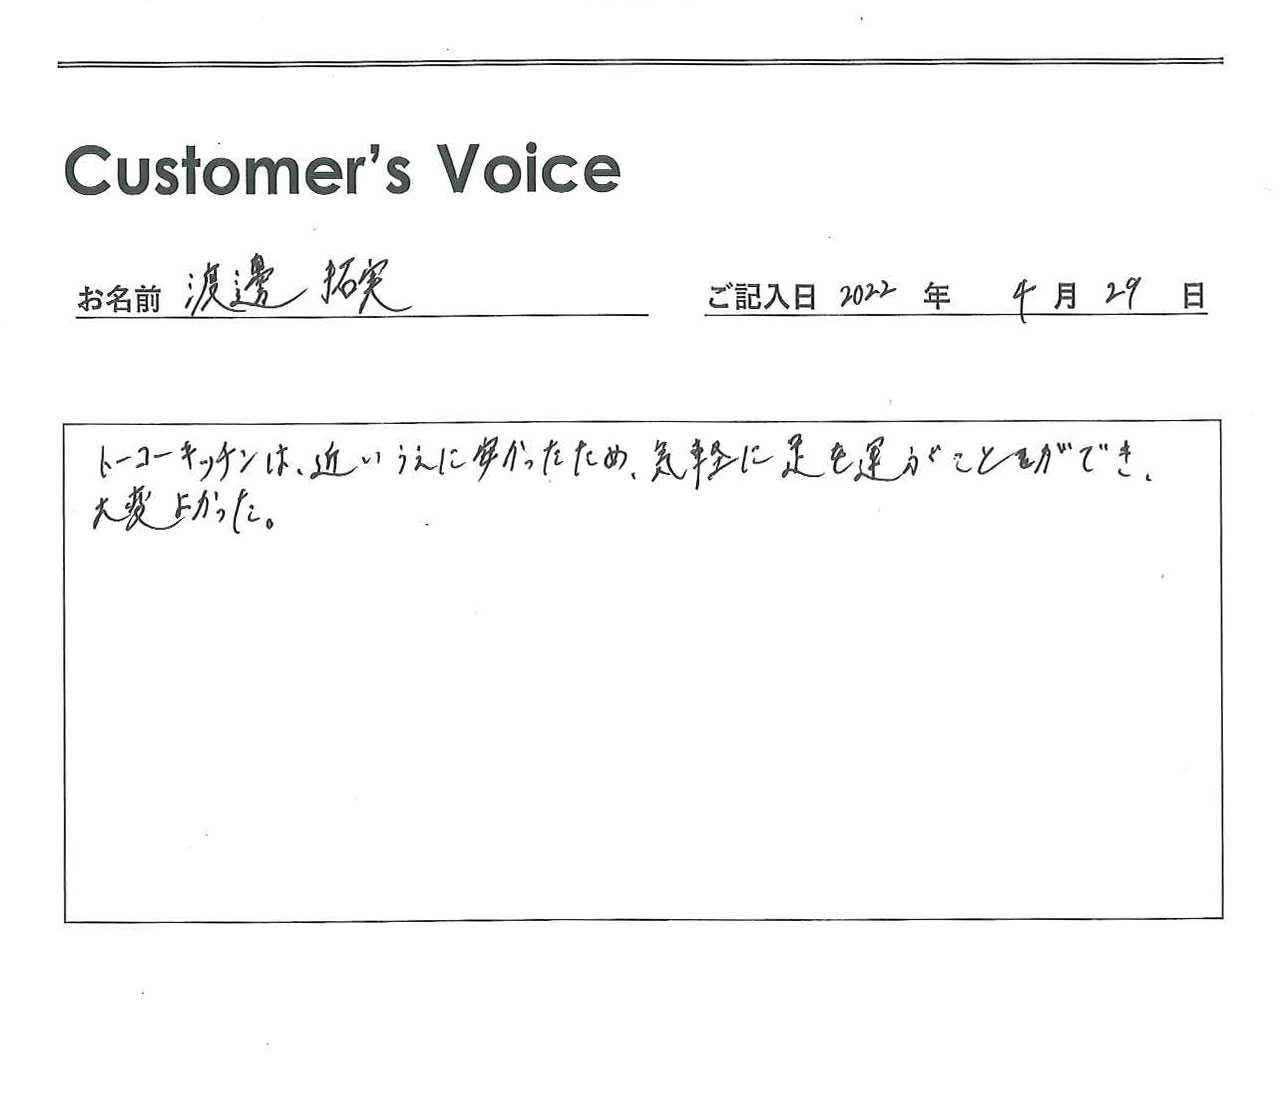 Customer's Voice
お名前 渡邊 拓実 ご記入日 2022 年 4 月 29 日
トーコーキッチンは、近いうえに安かったため、気軽に足を運ぶことができ、
大変よかった。